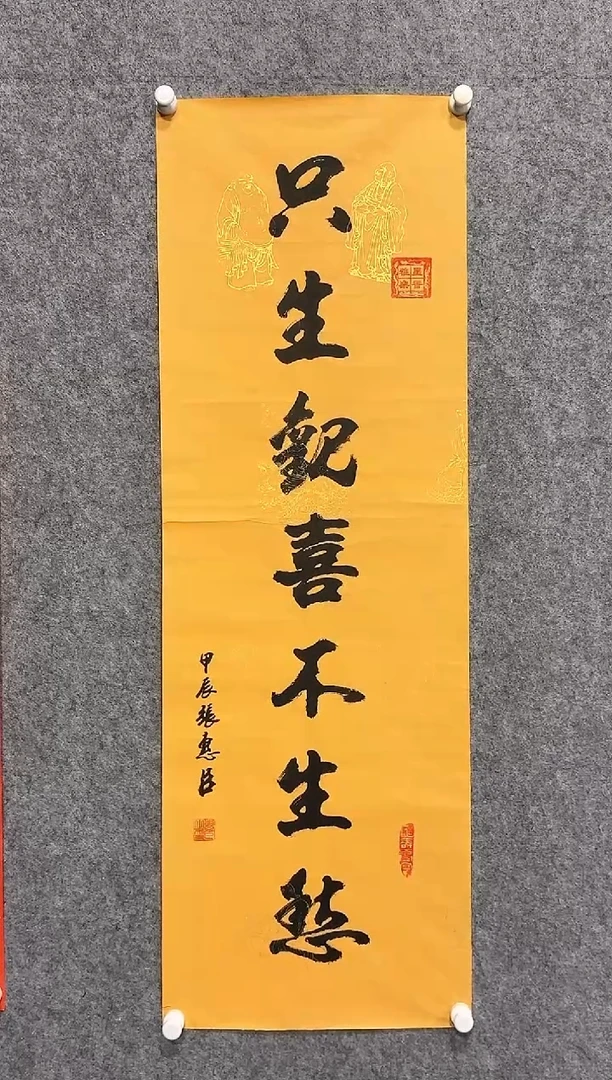 只生觀喜不生愁
甲辰張惠臣